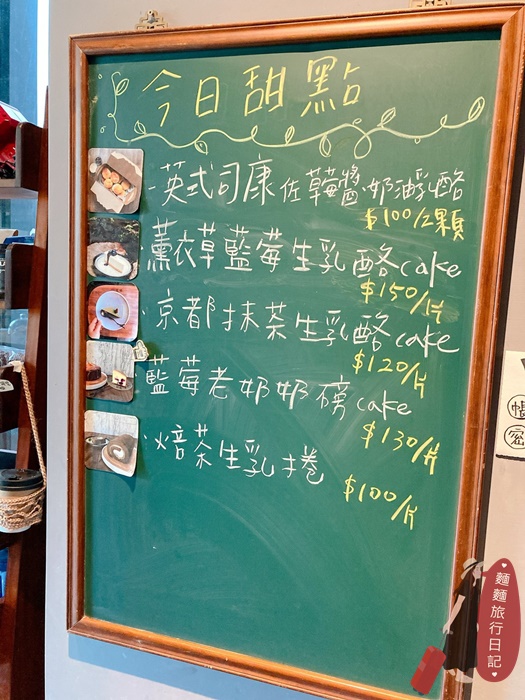 今日甜點
·英式司康佐草莓醬·奶油乳酪
$100/2顆
·薰衣草藍莓生乳酪cake
$150/片
·京都抹茶生乳酪cake
$120/片
藍莓老奶奶磅cake
$130/片
·焙茶生乳捲
$100/片
麵麵旅行日記